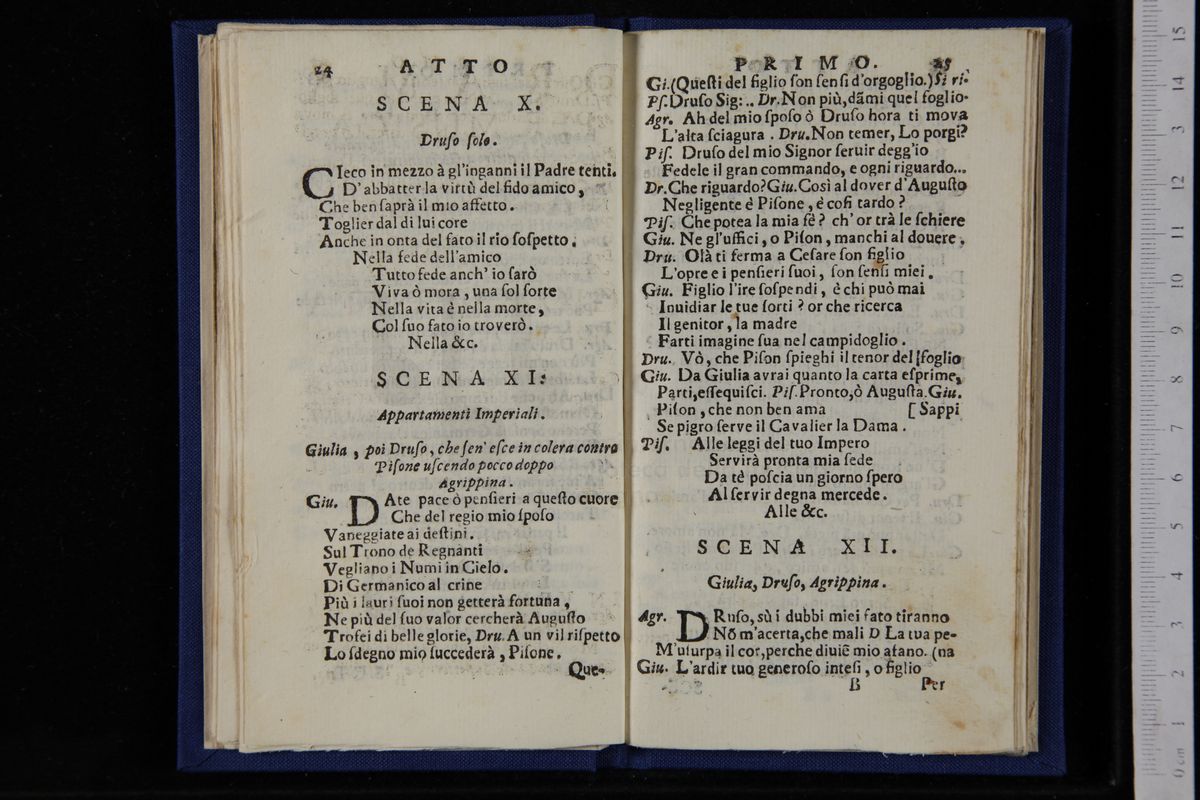 24 ATTO
SCENA X.
Druſo ſolo.
CIeco in mezzo à gl'inganni il Padre tenti.
D'abbatter la virtù del fido amico,
Che ben ſaprà il mio affetto.
Toglier dal di lui core
Anche in onta del fato il rio ſoſpetto.
Nella fede dell'amico
Tutto fede anch' io ſarò
Viva ò mora, una ſol ſorte
Nella vita è nella morte,
Col ſuo fato io troverò.
Nella &c.
SCENA XI:
Appartamenti Imperiali.
Giulia, poi Druſo, che ſen' eſce in colera contro
Piſone uſcendo pocco doppo
Agrippina.
Giu. DAte pace ò penſieri a queſto cuore
Che del regio mio ſpoſo
Vaneggiate ai deſtini.
Sul Trono de Regnanti
Vegliano i Numi in Cielo.
Di Germanico al crine
Più i lauri ſuoi non getterà fortuna,
Ne più del ſuo valor cercherà Auguſto
Trofei di belle glorie, Dru. A un vil riſpetto
Lo ſdegno mio ſuccederà, Piſone.
Que-
PRIMO. 25
Gi. (Queſti del figlio ſon ſenſi d'orgoglio.) Si ri-
Pſ. Druſo Sig: .. Dr. Non più, dãmi quel foglio-
Agr. Ah del mio ſpoſo ò Druſo hora ti mova
L'alta ſciagura. Dru. Non temer, Lo porgi?
Piſ. Druſo del mio Signor ſeruir degg'io
Fedele il gran commando, e ogni riguardo...
Dr. Che riguardo? Giu. Così al dover d'Auguſto
Negligente è Piſone, è coſi tardo?
Piſ. Che potea la mia fè? ch' or trà le ſchiere
Giu. Ne gl'uffici, o Piſon, manchi al douere.
Dru. Olà ti ferma a Ceſare ſon figlio
L'opre e i penſieri ſuoi, ſon ſenſi miei.
Giu. Figlio l'ire ſoſpendi, è chi può mai
Inuidiar le tue ſorti? or che ricerca
Il genitor, la madre
Farti imagine ſua nel campidoglio.
Dru. Vò, che Piſon ſpieghi il tenor del foglio
Giu. Da Giulia avrai quanto la carta eſprime,
Parti, eſſequiſci. Piſ. Pronto, ò Auguſta. Giu.
Piſon, che non ben ama [Sappi
Se pigro ſerve il Cavalier la Dama.
Piſ. Alle leggi del tuo Impero
Servirà pronta mia fede
Da tè poſcia un giorno ſpero
Al ſervir degna mercede.
Alle &c.
SCENA XII.
Giulia, Druſo, Agrippina.
Agr. DRuſo, sù i dubbi miei fato tiranno
Nõ m'acerta, che mali D La tua pe-
M'uſurpa il cor, perche diuiẽ mio afano. (na
Giu. L'ardir tuo generoſo inteſi, o figlio
B Per
0 cm 1 2 3 4 5 6 7 8 9 10 11 12 13 14 15